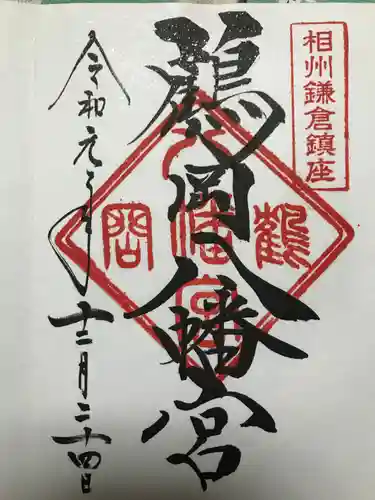 相州鎌倉鎮座
鶴岡八幡宮
鶴岡八幡宮
令和元年十二月二十四日